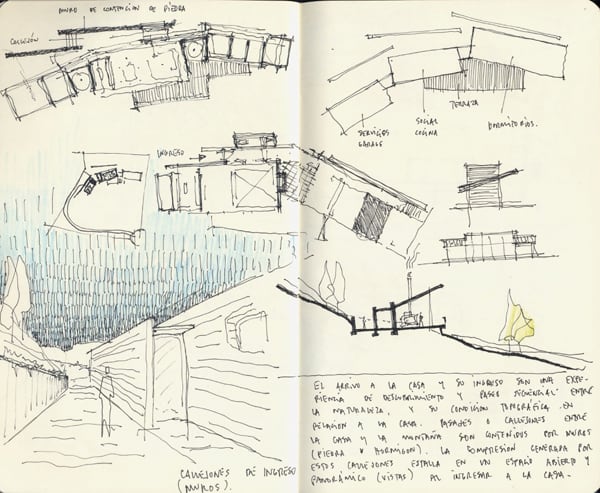 MURO DE CONTENCION DE PIEDRA
CALLEJÓN
INGRESO
CALLEJONES DE INGRESO
(MUROS).
TERRAZA
SOCIAL
COCINA
DORMITORIOS.
SERVICIOS
GARAGE
EL ARRIVO A LA CASA Y SU INGRESO SON UNA EXPE-
RIENCIA DE DESCUBRIMIENTO Y PASEO SECUENCIAL ENTRE
LA NATURALEZA, Y SU CONDICION TOPOGRÁFICA EN
RELACION A LA CASA. PASAJES O CALLEJONES ENTRE
LA CASA Y LA MONTAÑA SON CONTENIDOS POR MUROS
(PIEDRA Y HORMIGON). LA COMPRESIÓN GENERADA POR
ESTOS CALLEJONES ESTALLA EN UN ESPACIO ABIERTO Y
PANORÁMICO (VISTAS) AL INGRESAR A LA CASA.